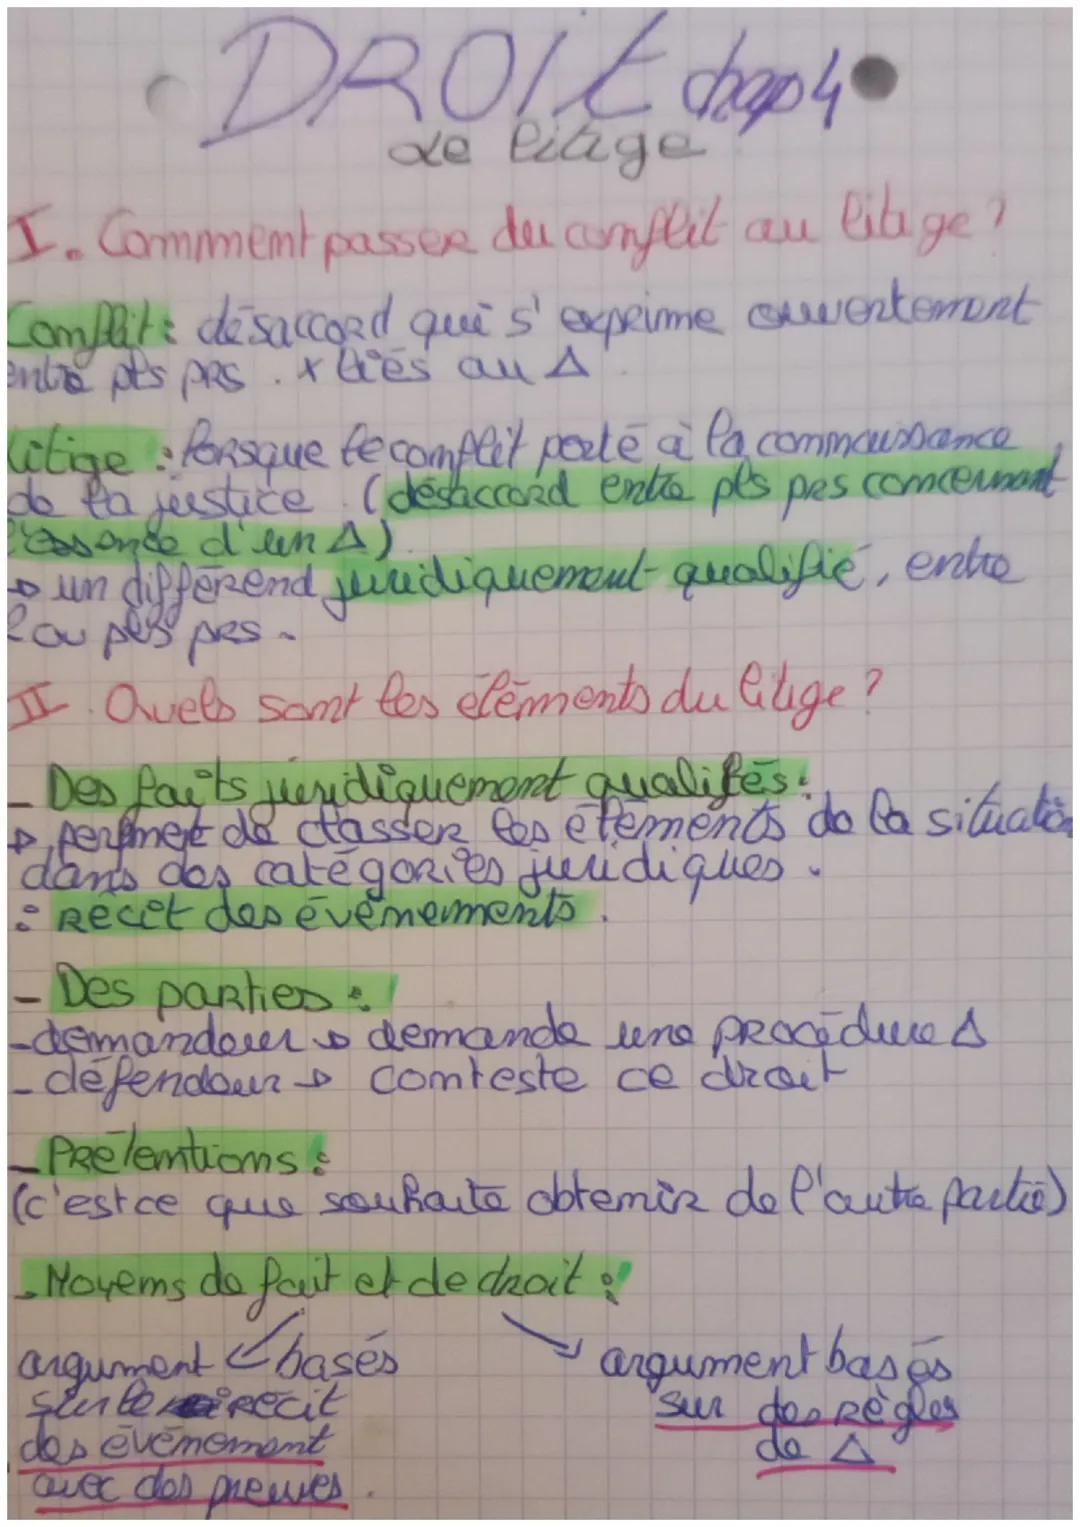 DROIT chap 4
Le litige
I. Comment passer du conflit au litige ?
Conflit : désaccord qui s'exprime ouvertement
entre pls prs. x liés au Δ.
Litige : lorsque le conflit porté à la connaissance
de la justice. (désaccord entre pls prs concernant
l'essence d'un Δ)
→ un différend juridiquement qualifié, entre
2 ou pls prs.
II. Quels sont les éléments du litige ?
- Des faits juridiquement qualifés :
→ permet de classer les éléments de la situation
dans des catégories juridiques.
: Récit des événements.
- Des parties :
- demandeur → demande une procédure Δ
- défendeur → conteste ce droit
- Prétentions :
(c'est ce que souhaite obtenir de l'autre partie)
- Moyens de fait et de droit :
argument basés
sur le récit
des événement
avec des preuves.
argument basés
sur des règles
de Δ